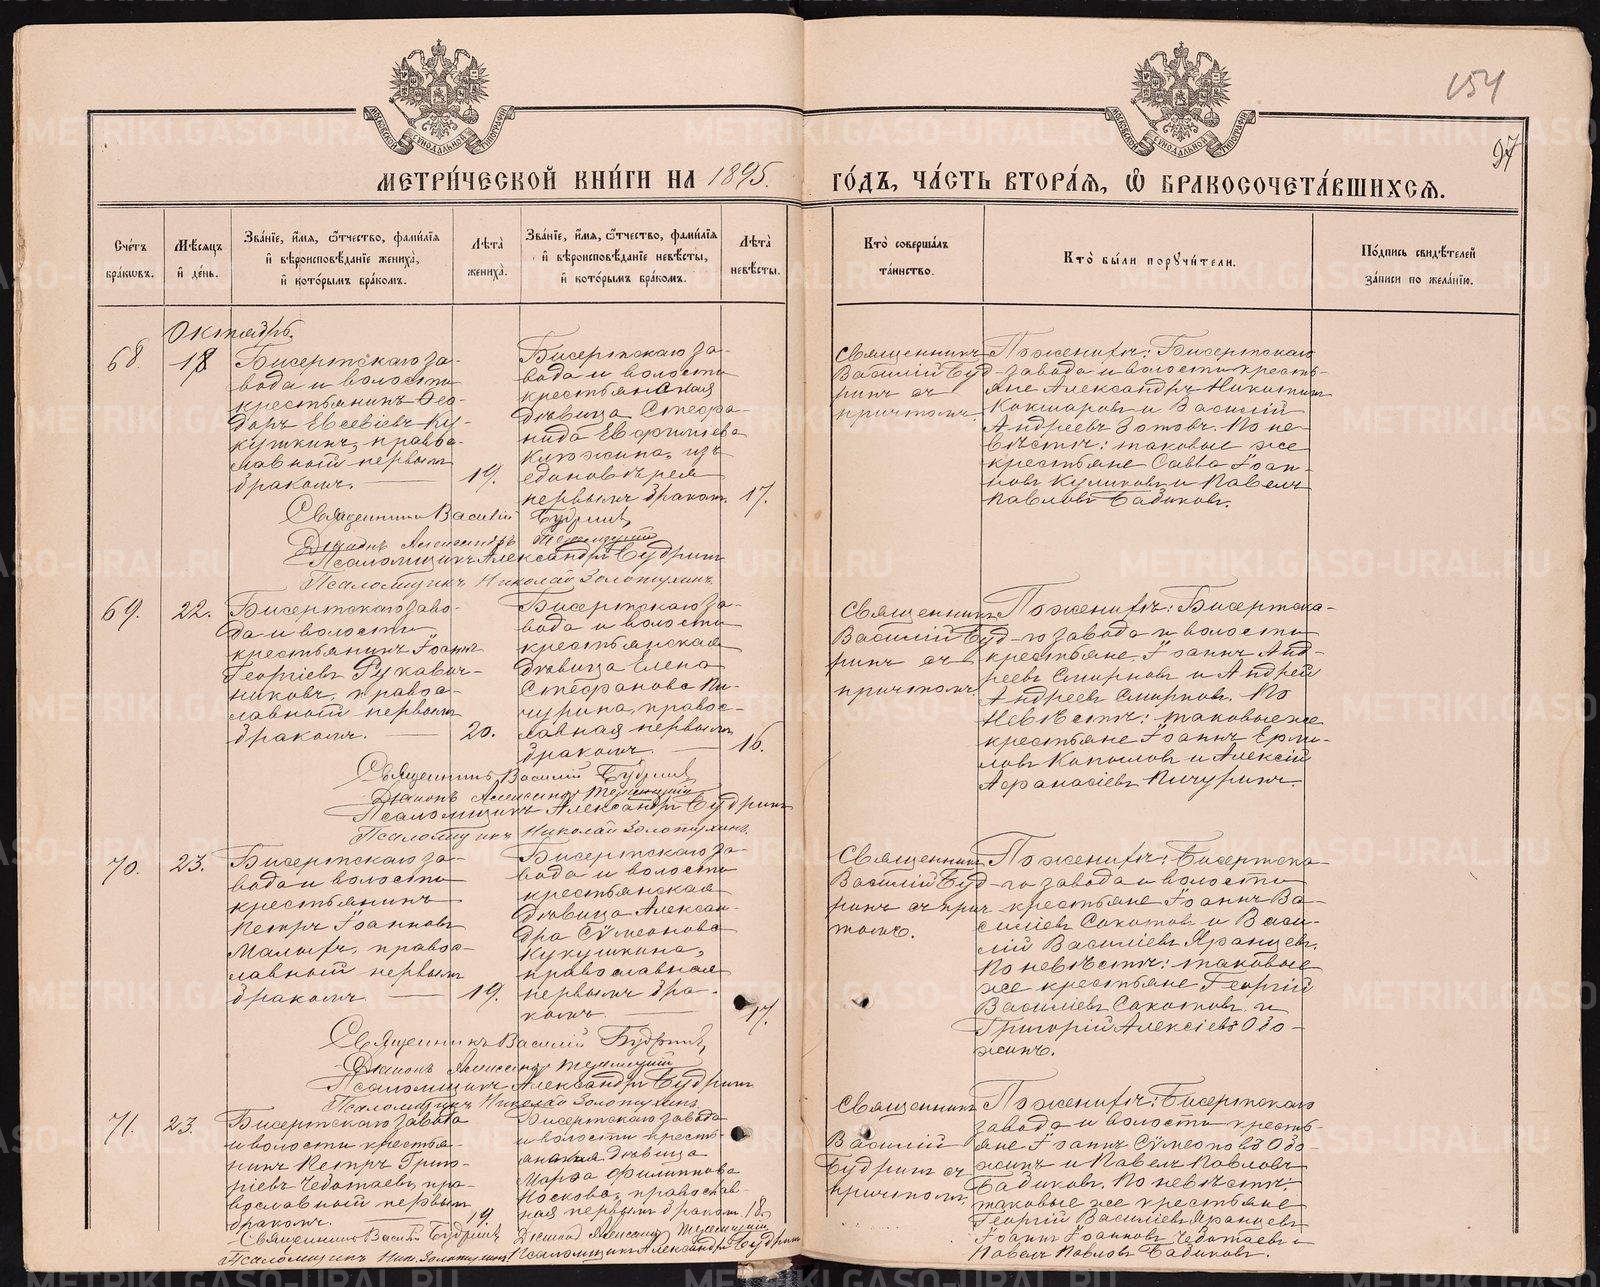 154
97
МОСКОВСКОЙ СУНОДАЛЬНОЙ ТИПОГРАФІИ
МОСКОВСКОЙ СУНОДАЛЬНОЙ ТИПОГРАФІИ
МЕТРИ́ЧЕСКОЙ КНИ́ГИ НА 1895. ГО́ДЪ, ЧА́СТЬ ВТОРА́Я, Ѡ БРАКОСОЧЕТА́ВШИХСЯ.
Сче́тъ бра́кωвъ.
Мѣ́сяцъ и҆ де́нь.
Зва́нїе, и҆́мя, ѻ҆́тчество, фами́лїя и҆ вѣроисповѣ́данїе жениха̀, и҆ кото́рымъ бра́комъ.
Лѣ́та жениха̀.
Зва́нїе, и҆́мя, ѻ҆́тчество, фами́лїя и҆ вѣроисповѣ́данїе невѣ́сты, и҆ кото́рымъ бра́комъ.
Лѣ́та невѣ́сты.
Кто̀ соверша́лъ та́инство.
Кто̀ бы́ли поручи́тели.
По́дпись свидѣ́телей за́писи по жела́нїю.
Октябрь.
68.
18
Бисертскаго за-
вода и волости
крестьянинъ Ѳео-
доръ Евсевіевъ Ку-
кушкинъ, право-
славный первым
бракомъ.
19.
Бисертскаго за-
вода и волости
крестьянская
дѣвица Стефа-
нида Евфиміева
изъ
единовѣрія
первымъ браком.
17.
Священникъ
Василій Буд-
ринъ съ
причтомъ.
По женихѣ: Бисертскаго
завода и волости кресть-
яне Александръ Никитин
Кокшаровъ и Василій
Андреевъ Зотовъ. По не-
вѣстѣ: таковые же
крестьяне Савва Іоан-
новъ Куликовъ и Павелъ
Павловъ Бабиковъ.
Священникъ Василій Будринъ
Діаконъ Александръ
Псаломщикъ Александръ Будринъ
Псаломщикъ Николай Золотухинъ
69.
22.
Бисертскаго заво-
да и волости
крестьянинъ Іоаннъ
Георгіевъ Рукавич-
никовъ, право-
славный первым
бракомъ.
20.
Бисертскаго за-
вода и волости
крестьянская
дѣвица Елена
Стефанова Пи-
чурина, правос-
лавная первым
бракомъ.
16.
Священникъ
Василій Буд-
ринъ съ
причтомъ.
По женихѣ: Бисертска-
го завода и волости
крестьяне Іоаннъ Анд-
реевъ Смирновъ и Андрей
Андреевъ Смирновъ. По
невѣстѣ: таковые же
крестьяне Іоаннъ Ерми-
ловъ Копыловъ и Алексій
Афанасіевъ Пичуринъ.
Священникъ Василій Будринъ
Діаконъ Александръ
Псаломщикъ Александръ Будринъ
Псаломщикъ Николай Золотухинъ.
70.
23.
Бисертскаго за-
вода и волости
крестьянинъ
Петръ Іоанновъ
Малыхъ, правос-
лавный первым
бракомъ
19.
Бисертскаго за-
вода и волости
крестьянская
дѣвица Алексан-
дра Сѵмеонова
Кукушкина,
православная
первымъ бра-
комъ.
17.
Священникъ
Василій Буд-
ринъ съ прич
томъ.
По женихѣ: Бисертска-
го завода и волости
крестьяне Іоаннъ Ва-
силіевъ Сокотовъ и Васи-
лій Василіевъ Яранцевъ.
По невѣстѣ: таковые
же крестьяне Георгій
Василіевъ Сокотовъ и
Григорій Алексіевъ Обо-
жинъ.
Священникъ Василій Будринъ
Діаконъ Александръ
Псаломщикъ Александръ Будринъ
Псаломщикъ Николай Золотухинъ
71.
23.
Бисертскаго завода
и волости крестья-
нинъ Петръ Григо-
ріевъ Чеботаевъ, пра-
вославный первым
бракомъ.
19
Бисертскаго завода
и волости кресть-
янская дѣвица
Марѳа Филиппова
Носкова, православ-
ная первым браком
18.
Священникъ
Василій
Будринъ съ
причтомъ.
По женихѣ: Бисертскаго
завода и волости кресть-
яне Іоаннъ Сѵмеоновъ Обо-
жинъ и Павелъ Павловъ
Бабиковъ. По невѣстѣ:
таковые же крестьяне
Георгій Василіевъ Яранцевъ
Іоаннъ Іоанновъ Чеботаевъ и
Павелъ Павловъ Бабиковъ.
Священникъ Василій Будринъ
Діаконъ Александръ
Псаломщикъ Ник. Золотухинъ
Псаломщикъ Александръ Будринъ
METRIKI.GASO-URAL.RU